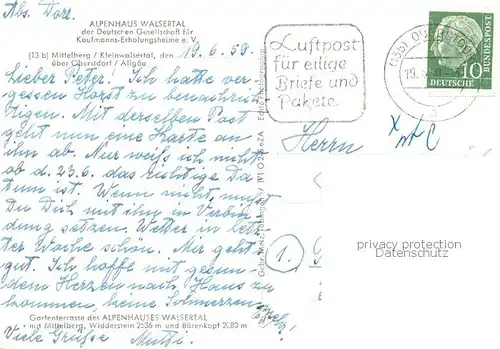 Abs. Dorr.
ALPENHAUS WALSERTAL
der Deutschen Gesellschaft für
Kaufmanns-Erholungsheime e. V.
(13 b) Mittelberg / Kleinwalsertal,
über Oberstdorf / Allgäu
19.6.59.
Lieber Peter! Ich hatte ver-
gessen Horst zu benachrich-
tigen. Mit derselben Post
geht nun eine Karte an
ihn ab. Nur weiß ich nicht
ab d. 23.6. das richtige Da-
tum ist. Wenn nicht, mußt
Du Dich mit ihm in Verbin-
dung setzen. Wetter in letz-
ter Woche schön. Mir geht
gut. Ich hoffe mit gesun-
dem Herzen nach Haus zu
kommen, keine Schmerzen
Gartenterrasse des ALPENHAUSES WALSERTAL
mit Mittelberg, Widderstein 2536 m und Bärenkopf 2080 m
Viele Grüße Mutti.
Gebr. Metz, Tübingen
Echte Photographie
Luftpost
für eilige
Briefe und
Pakete.
(13b)
19.
10
DEUTSCHE
BUNDESPOST
Herrn
1.
privacy protection
Datenschutz